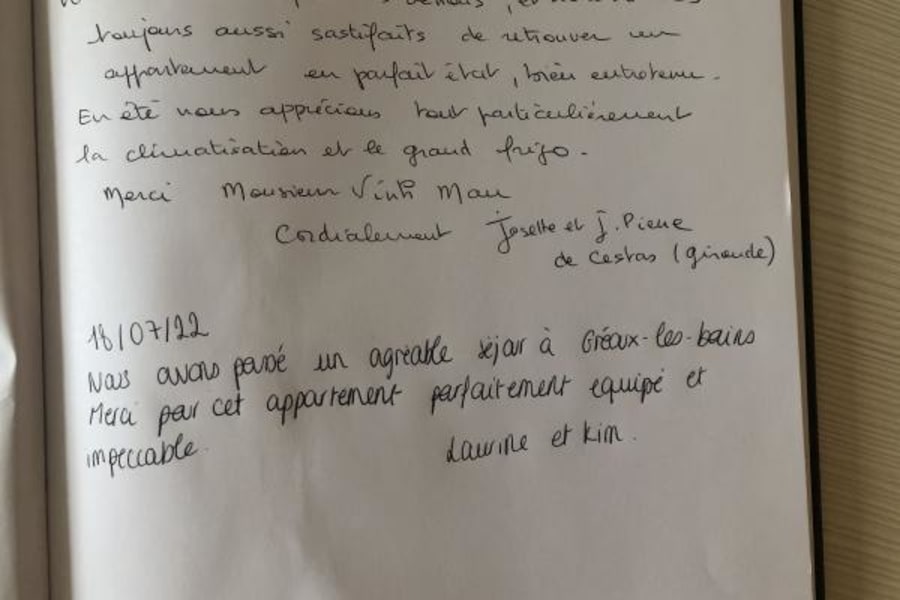 toujours aussi sastifaits de retrouver un
appartement en parfait état, bien entretenu.
En été nous apprécions tout particulièrement
la climatisation et le grand frigo.
Merci Monsieur Vinh Mau
Cordialement Josette et J. Pierre
de Cestas (Gironde)
18/07/22
Nous avons passé un agréable séjour à Gréoux-les-bains
Merci pour cet appartement parfaitement equipé et
impeccable.
Laurine et Kim.